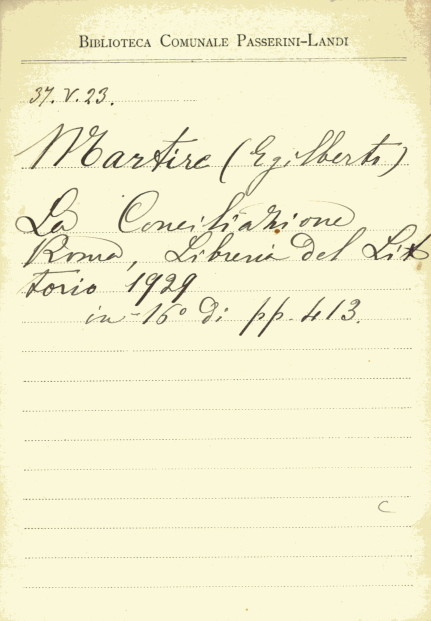 Biblioteca Comunale Passerini-Landi
37. V. 23.
Martire (Egilberto)
La Conciliazione
Roma, Libreria del Lit
torio 1929
in-16° di pp. 413.
C